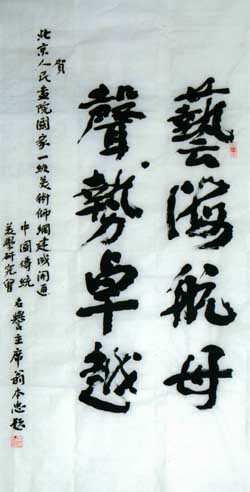 藝海航母
聲勢卓越
賀
北京人民畫院國家一級美術師網建成開通
中國傳統
美學研究會
名譽主席翁本忠題